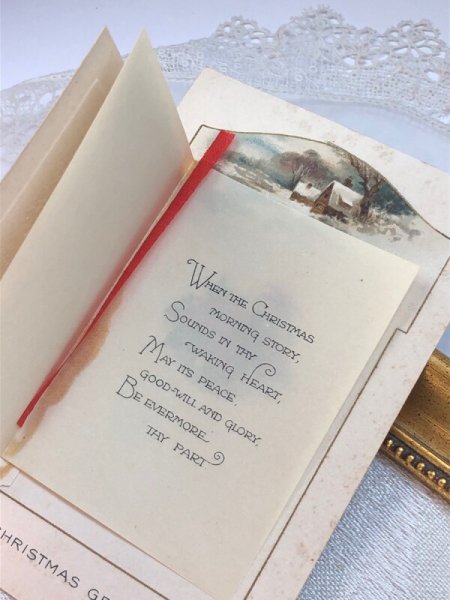 When the Christmas
morning story,
Sounds in thy
waking heart,
May its peace,
good-will and glory,
Be evermore
thy part
CHRISTMAS